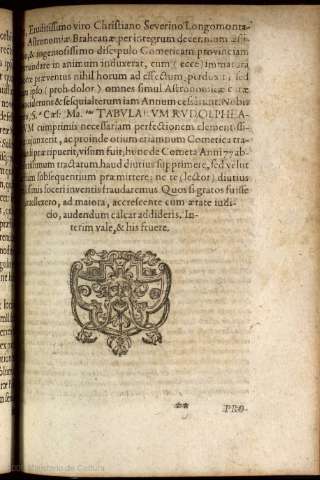 Eruditissimo viro Christiano Severino Longomonta-
Astronomiæ Braheanæ per integrum decennium assi-
& ingeniosissimo discipulo Cometicam provinciam
in animum induxerat, cum (ecce) immatura
te præventus nihil horum ad effectum perduxit; sed
ipso (proh dolor) omnes simul Astronomicæ curæ
& sesquialterum iam Annum cessarunt. Nobis
S.æ Cæs. Ma.tis TABULARUM RVDOLPHEA-
VM cumprimis necessariam perfectionem clementissi-
ac proinde otium etiamnum Cometica tra-
præripuerit, visum fuit, hunc de Cometa Anni 77 ab-
tractatum, haud diutius supprimere, sed velut
subsequentium præmittere; ne te (lector) diutius
soceri inventis fraudaremus. Quos si gratos fuisse
ad maiora, accrescente cum ætate iudi-
cio, audendum calcar addideris. In-
terim vale, & his fruere.
** PRO-
Ministerio de Cultura